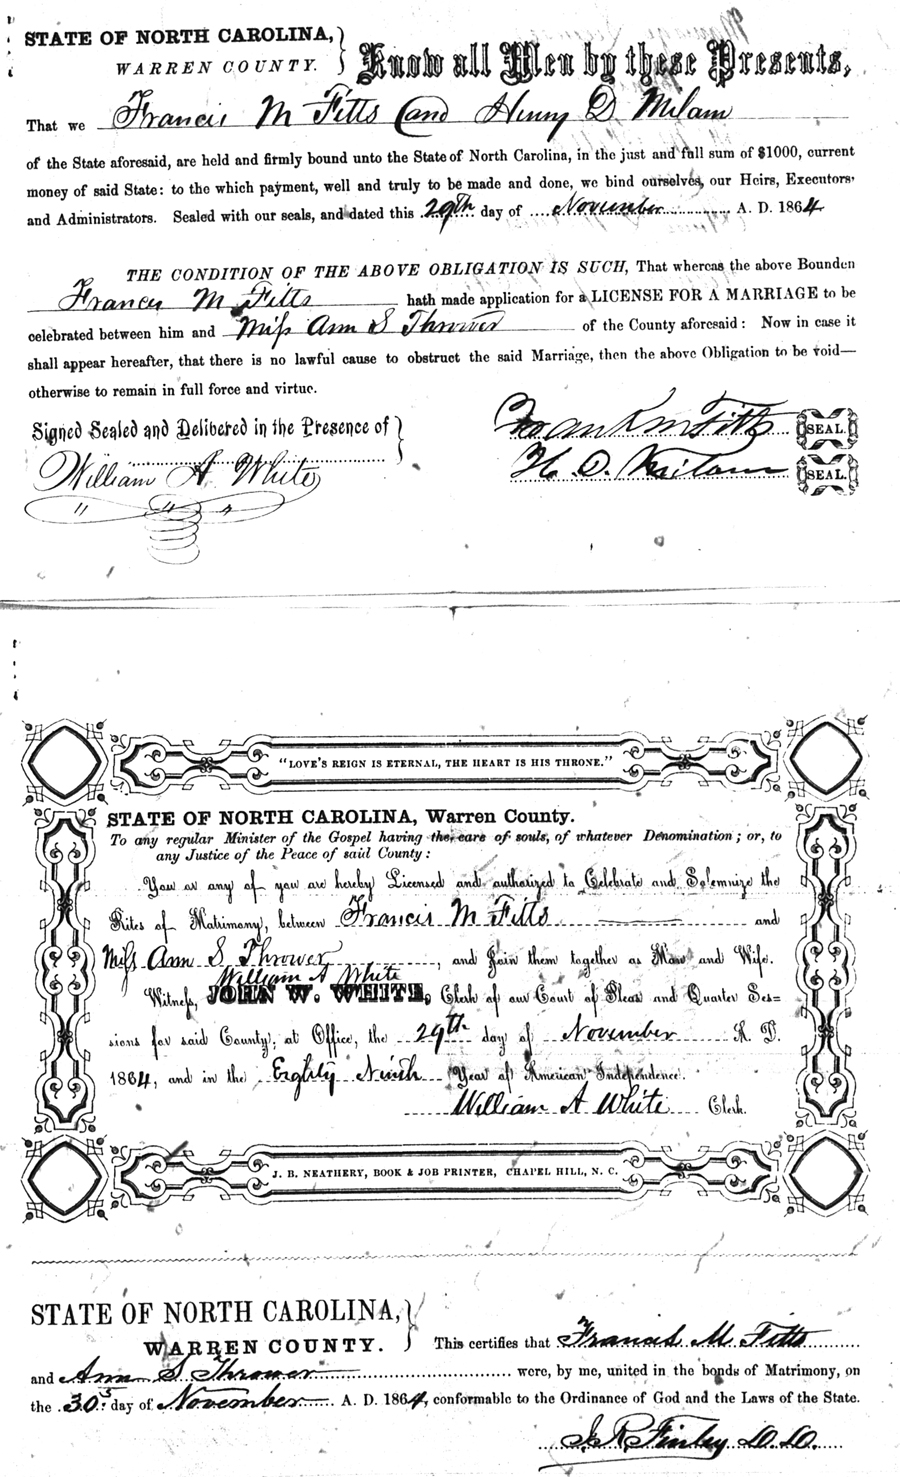 STATE OF NORTH CAROLINA,
WARREN COUNTY.
Know all Men by these Presents,
That we Francis M Fitts (and Henry D Milam
of the State aforesaid, are held and firmly bound unto the State of North Carolina, in the just and full sum of $1000, current
money of said State: to the which payment, well and truly to be made and done, we bind ourselves, our Heirs, Executors,
and Administrators. Sealed with our seals, and dated this 29th day of November A. D. 1864
THE CONDITION OF THE ABOVE OBLIGATION IS SUCH, That whereas the above Bounden
Francis M Fitts hath made application for a LICENSE FOR A MARRIAGE to be
celebrated between him and Miss Ann S Thrower of the County aforesaid: Now in case it
shall appear hereafter, that there is no lawful cause to obstruct the said Marriage, then the above Obligation to be void—
otherwise to remain in full force and virtue.
Signed Sealed and Delibered in the Presence of
William A. White
Frank M Fitts SEAL.
H. D. Milam SEAL.
"LOVE'S REIGN IS ETERNAL, THE HEART IS HIS THRONE."
STATE OF NORTH CAROLINA, Warren County.
To any regular Minister of the Gospel having the care of souls, of whatever Denomination; or, to
any Justice of the Peace of said County:
You or any of you are hereby Licensed and authorized to Celebrate and Solemnize the
Rites of Matrimony, between Francis M Fitts and
Miss Ann S Thrower, and Join them together as Man and Wife.
William A White
Witness, JOHN W. WHITE, Clerk of our Court of Pleas and Quarter Ses=
sions for said County, at Office, the 29th day of November A. D.
1864, and in the Eighty Ninth Year of American Independence.
William A White Clerk.
J. B. NEATHERY, BOOK & JOB PRINTER, CHAPEL HILL, N. C.
STATE OF NORTH CAROLINA,
WARREN COUNTY.
This certifies that Francis M Fitts
and Ann S Thrower were, by me, united in the bonds of Matrimony, on
the 30 day of November A. D. 1864, conformable to the Ordinance of God and the Laws of the State.
J. R. Finley D. D.